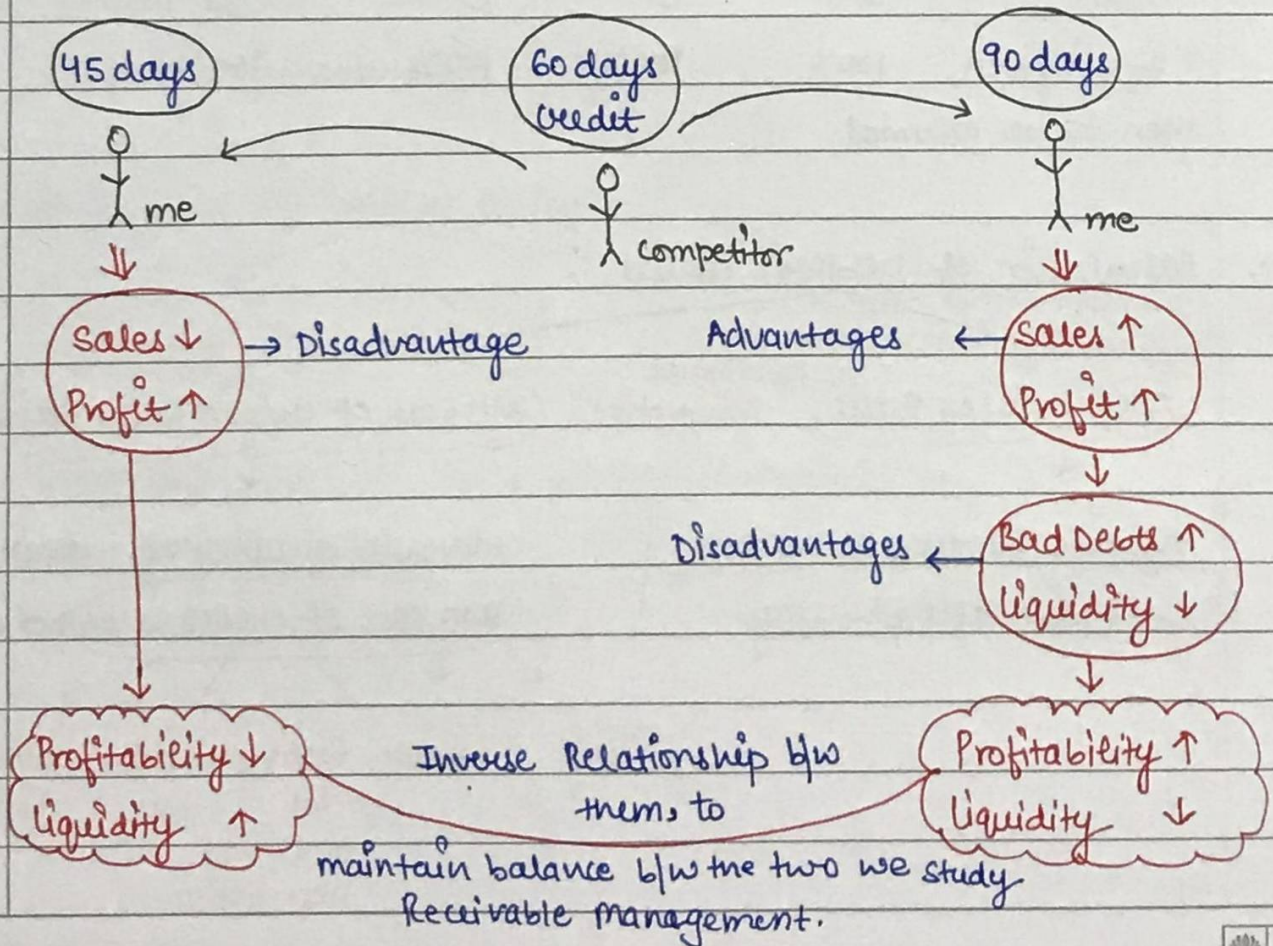 45 days
60 days
credit
90 days
me
competitor
me
Sales ↓ → Disadvantage
Profit ↑
Advantages ← Sales ↑
Profit ↑
Disadvantages ← Bad Debts ↑
liquidity ↓
Profitability ↓
liquidity ↑
Inverse Relationship b/w
them, to
maintain balance b/w the two we study
Receivable management.
Profitability ↑
liquidity ↓